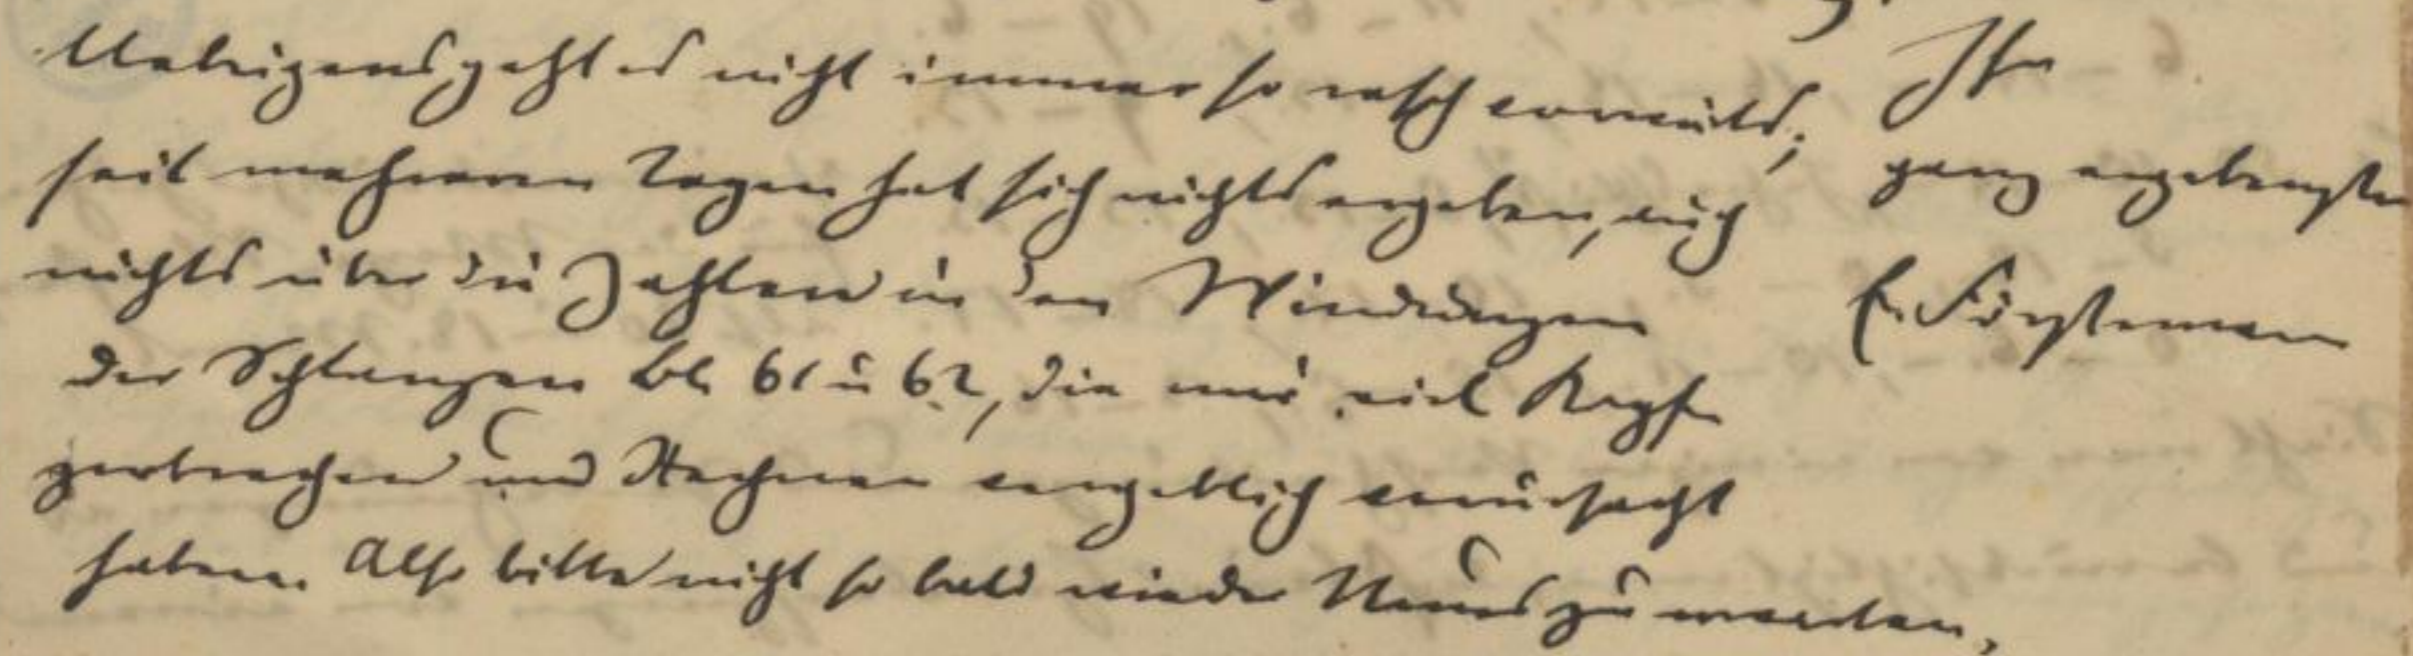 Uebrigens geht es nicht immer so rasch vorwärts;
seit mehreren Tagen hat sich nichts ergeben, auch
nichts über die Zahlen in den Windungen
der Schlangen bl 61 u 62, die mir viel Kopf
zerbrechen und Rechnen vergeblich verursacht
haben. Also bitte nicht so bald wieder Neues zu erwarten.
Ihr
ganz ergebenster
E. Förstemann